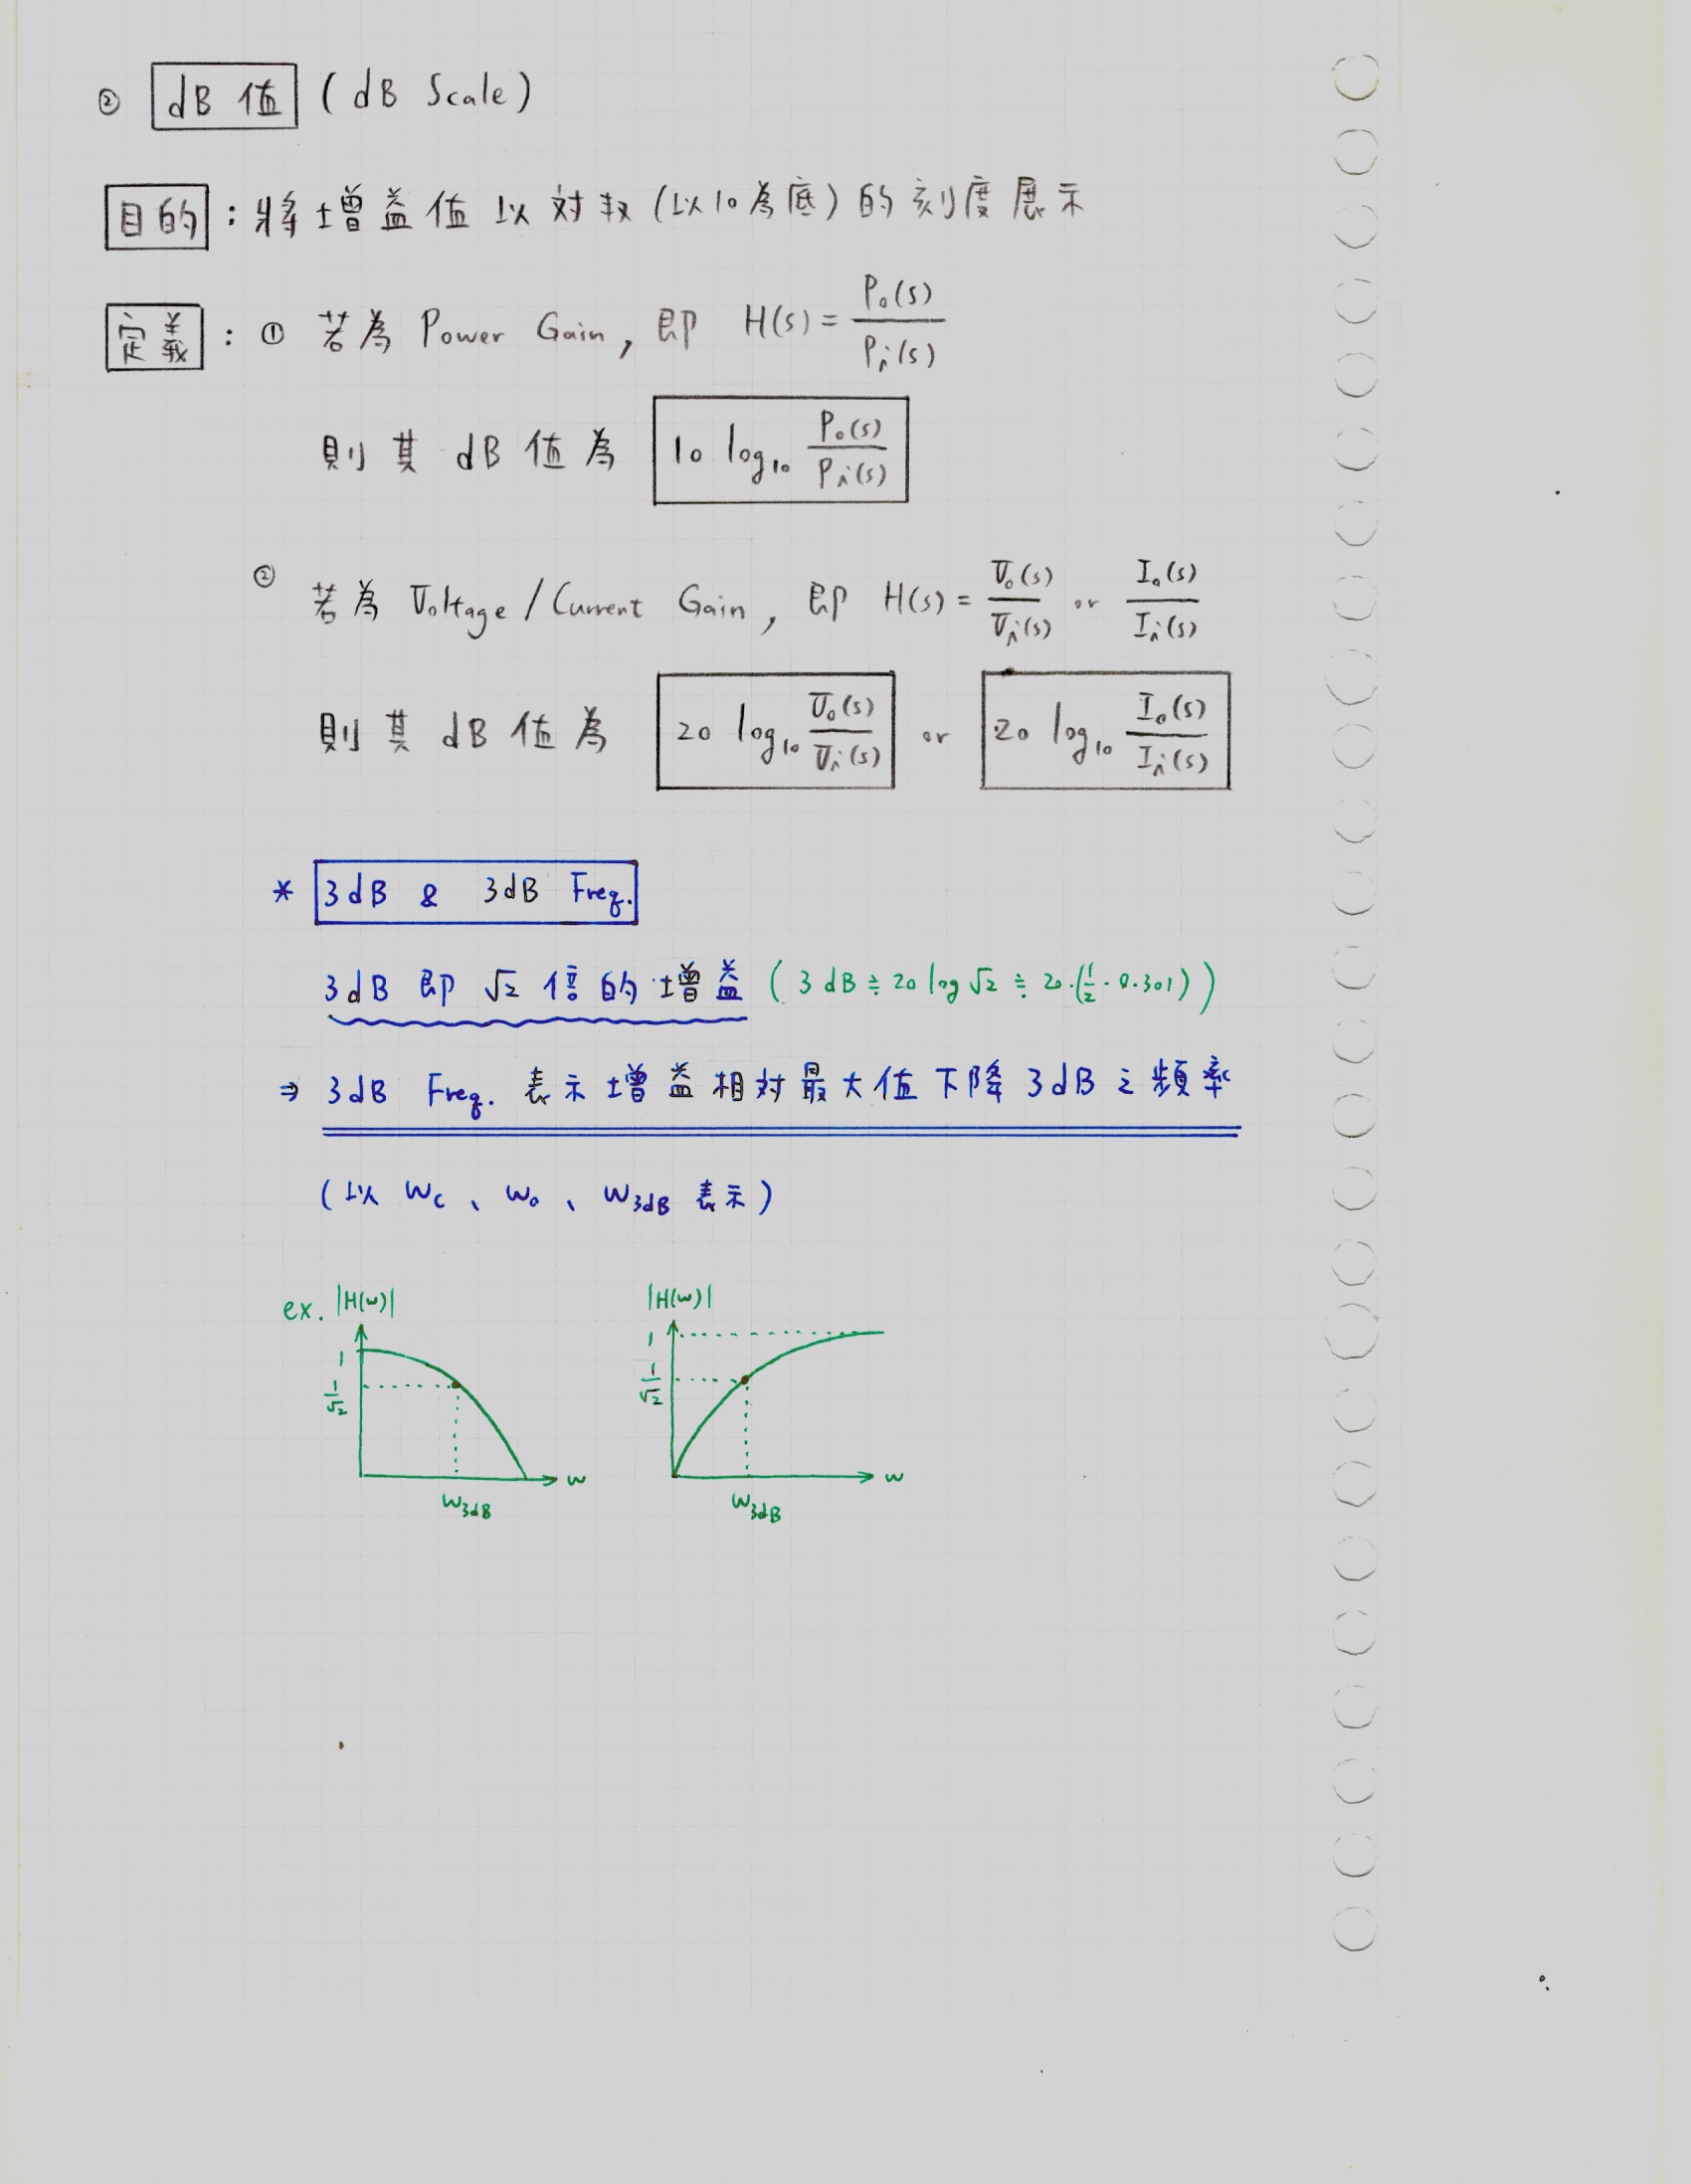 ② dB 值 (dB Scale)
目的：將增益值以対数(以10為底)的刻度展示
定義：① 若為 Power Gain, 即 H(s) = Po(s)/Pi(s)
則其 dB 值為 10 log₁₀ Po(s)/Pi(s)
② 若為 Voltage/Current Gain, 即 H(s) = Vo(s)/Vi(s) or Io(s)/Ii(s)
則其 dB 值為 20 log₁₀ Vo(s)/Vi(s) or 20 log₁₀ Io(s)/Ii(s)
* 3dB & 3dB Freq.
3dB 即 √2 倍的增益 (3dB ≒ 20 log √2 ≒ 20·(1/2·0.301))
⇒ 3dB Freq. 表示增益相対最大值下降 3dB 之頻率
(以 Wc、Wo、W3dB 表示)
ex. |H(w)|
1
1/√2
w
W3dB
|H(w)|
1
1/√2
w
W3dB